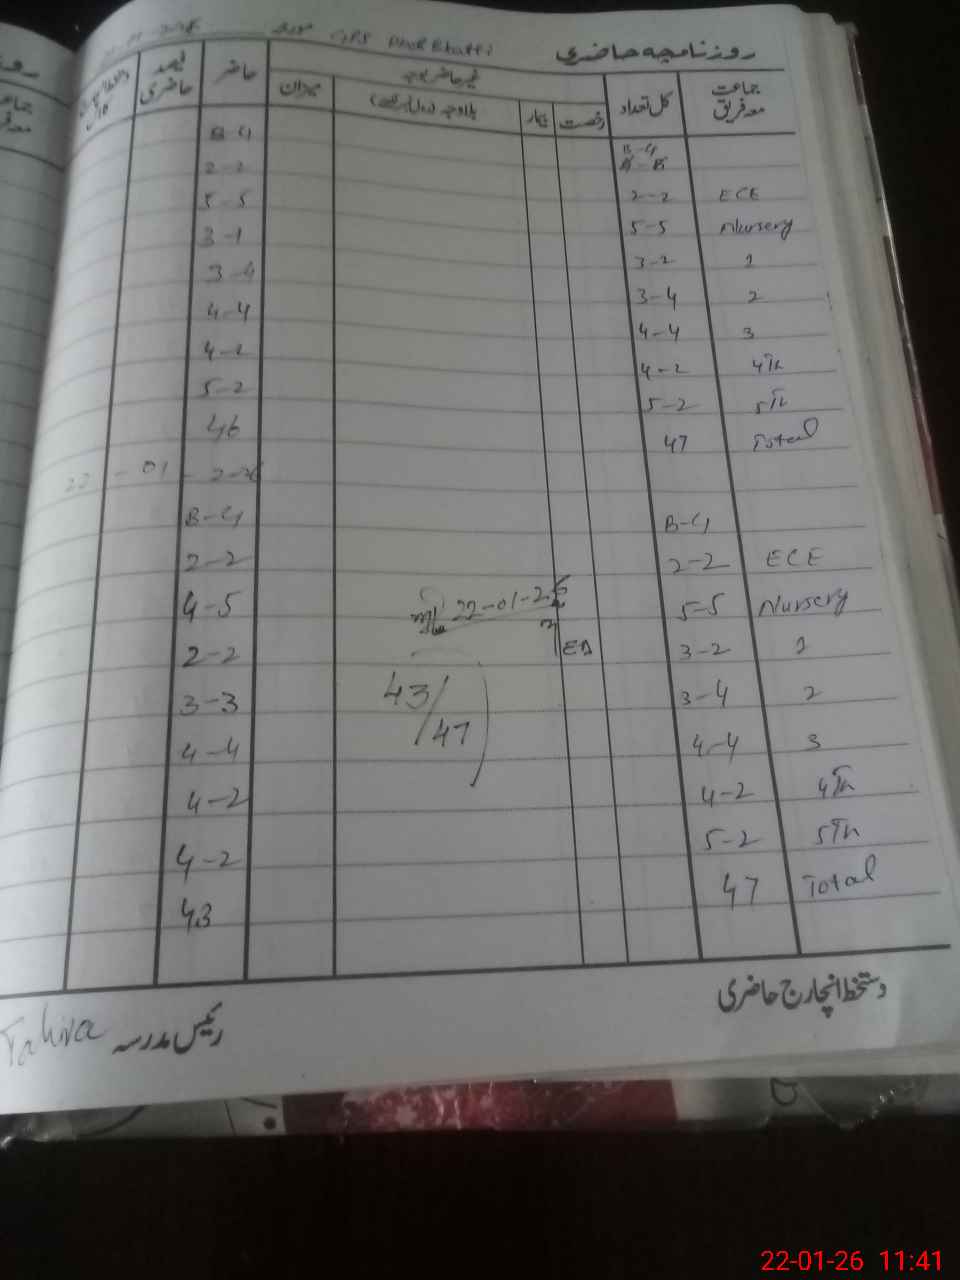 روزنامچہ حاضری GPS Dhok Bhatti مورخہ
جماعت معہ فریق کل تعداد غیر حاضر بوجہ حاضر فیصد حاضری
رخصت بیمار بلاوجہ میزان
B-G B-G
ECE 2-2 2-2
Nursery 5-5 5-5
1 3-2 3-1
2 3-4 3-4
3 4-4 4-4
4Th 4-2 4-2
5Th 5-2 5-2
Total 47 46
22-01-2-26
B-G B-G
ECE 2-2 2-2
Nursery 5-5 4-5
22-01-26
1 3-2 2-2
2 3-4 3-3
43/47
3 4-4 4-4
4Th 4-2 4-2
5Th 5-2 4-2
Total 47 43
دستخط انچارج حاضری
رئیس مدرسہ Tahira
22-01-26 11:41